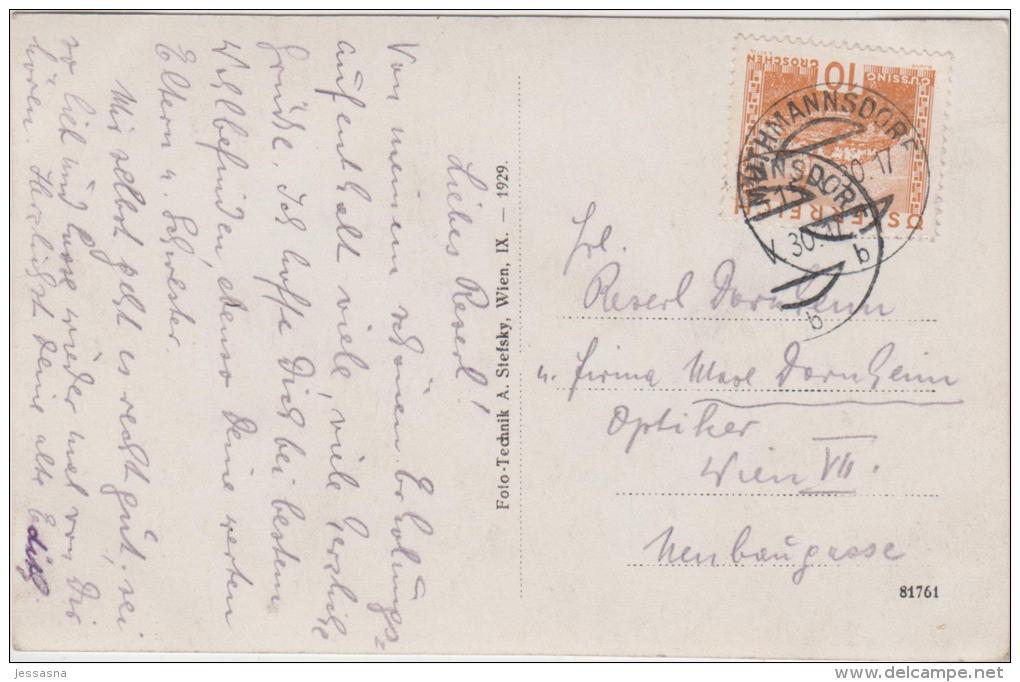 Liebes Reserl!
Von meinem schönen Erholungs=
aufenthalt viele, viele herzliche
Grüße. Ich hoffe Dich bei bestem
Wohlbefinden ebenso Deine werten
Eltern u. Schwester.
Mir selbst geht es recht gut, sei
so lieb und lasse wieder mal von Dir
hören. Herzlichst Deine alte Edith.
Foto-Technik A. Stefsky, Wien, IX. — 1929.
GÜSSING
10
GROSCHEN
ÖSTERREICH
MUTHMANNSDORF
30.17
b
NSDORF
30.17
b
Frl.
Reserl Dornheim
Firma Dornheim
Optiker
Wien VII.
Neubaugasse
81761
jessasna
www.delcampe.net